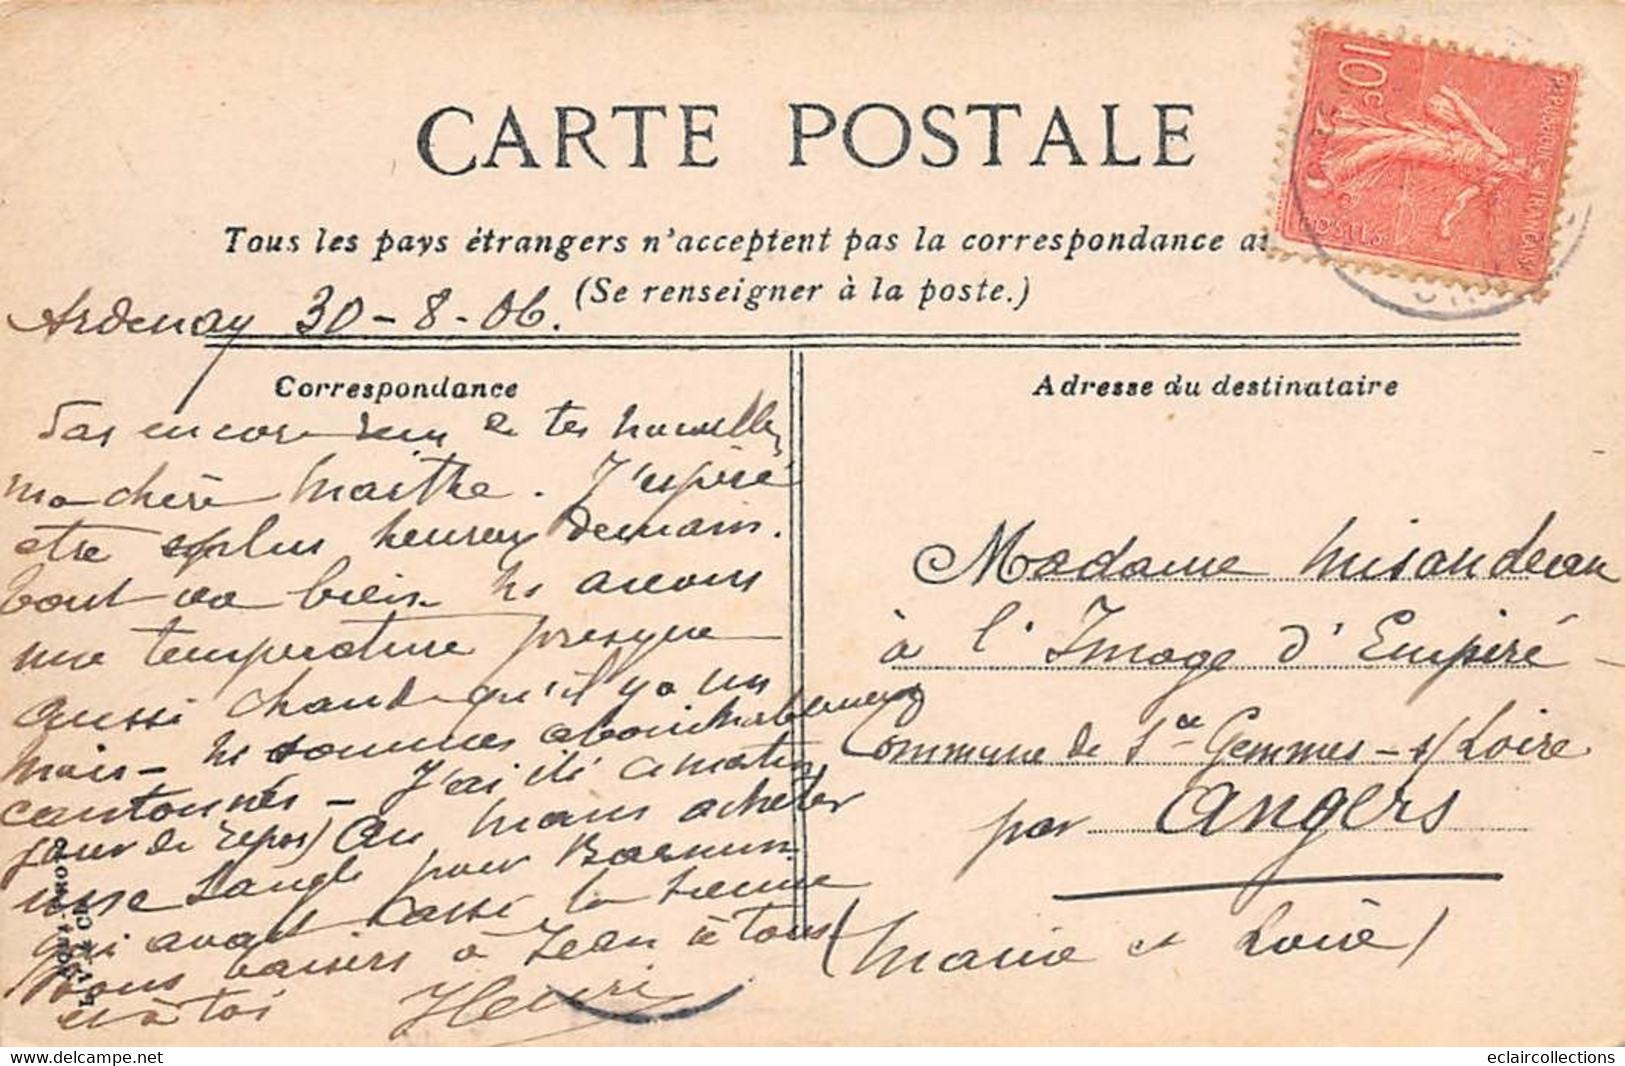 CARTE POSTALE
Tous les pays étrangers n'acceptent pas la correspondance a
(Se renseigner à la poste.)
10c
REPUBLIQUE FRANCAISE
POSTES
Ardenay 30-8-06.
Correspondance
Pas encore rien de tes nouvelles
ma chère Marthe. J'espère
etre plus heureux demain.
tout va bien. ns avons
une temperature presque
aussi chaude qu'il y a un
mois - ns sommes
cantonnés - J'ai été ce matin
jour de repos) au Mans acheter
une sangle pour Barnum
qui avait cassé la sienne
baisers à Jean à tous
et à toi Henri
Adresse du destinataire
Madame Misandeau
à l'Image d'Empiré
Commune de Ste Gemmes-s/Loire
par Angers
(Maine et Loire)
eclaircollections